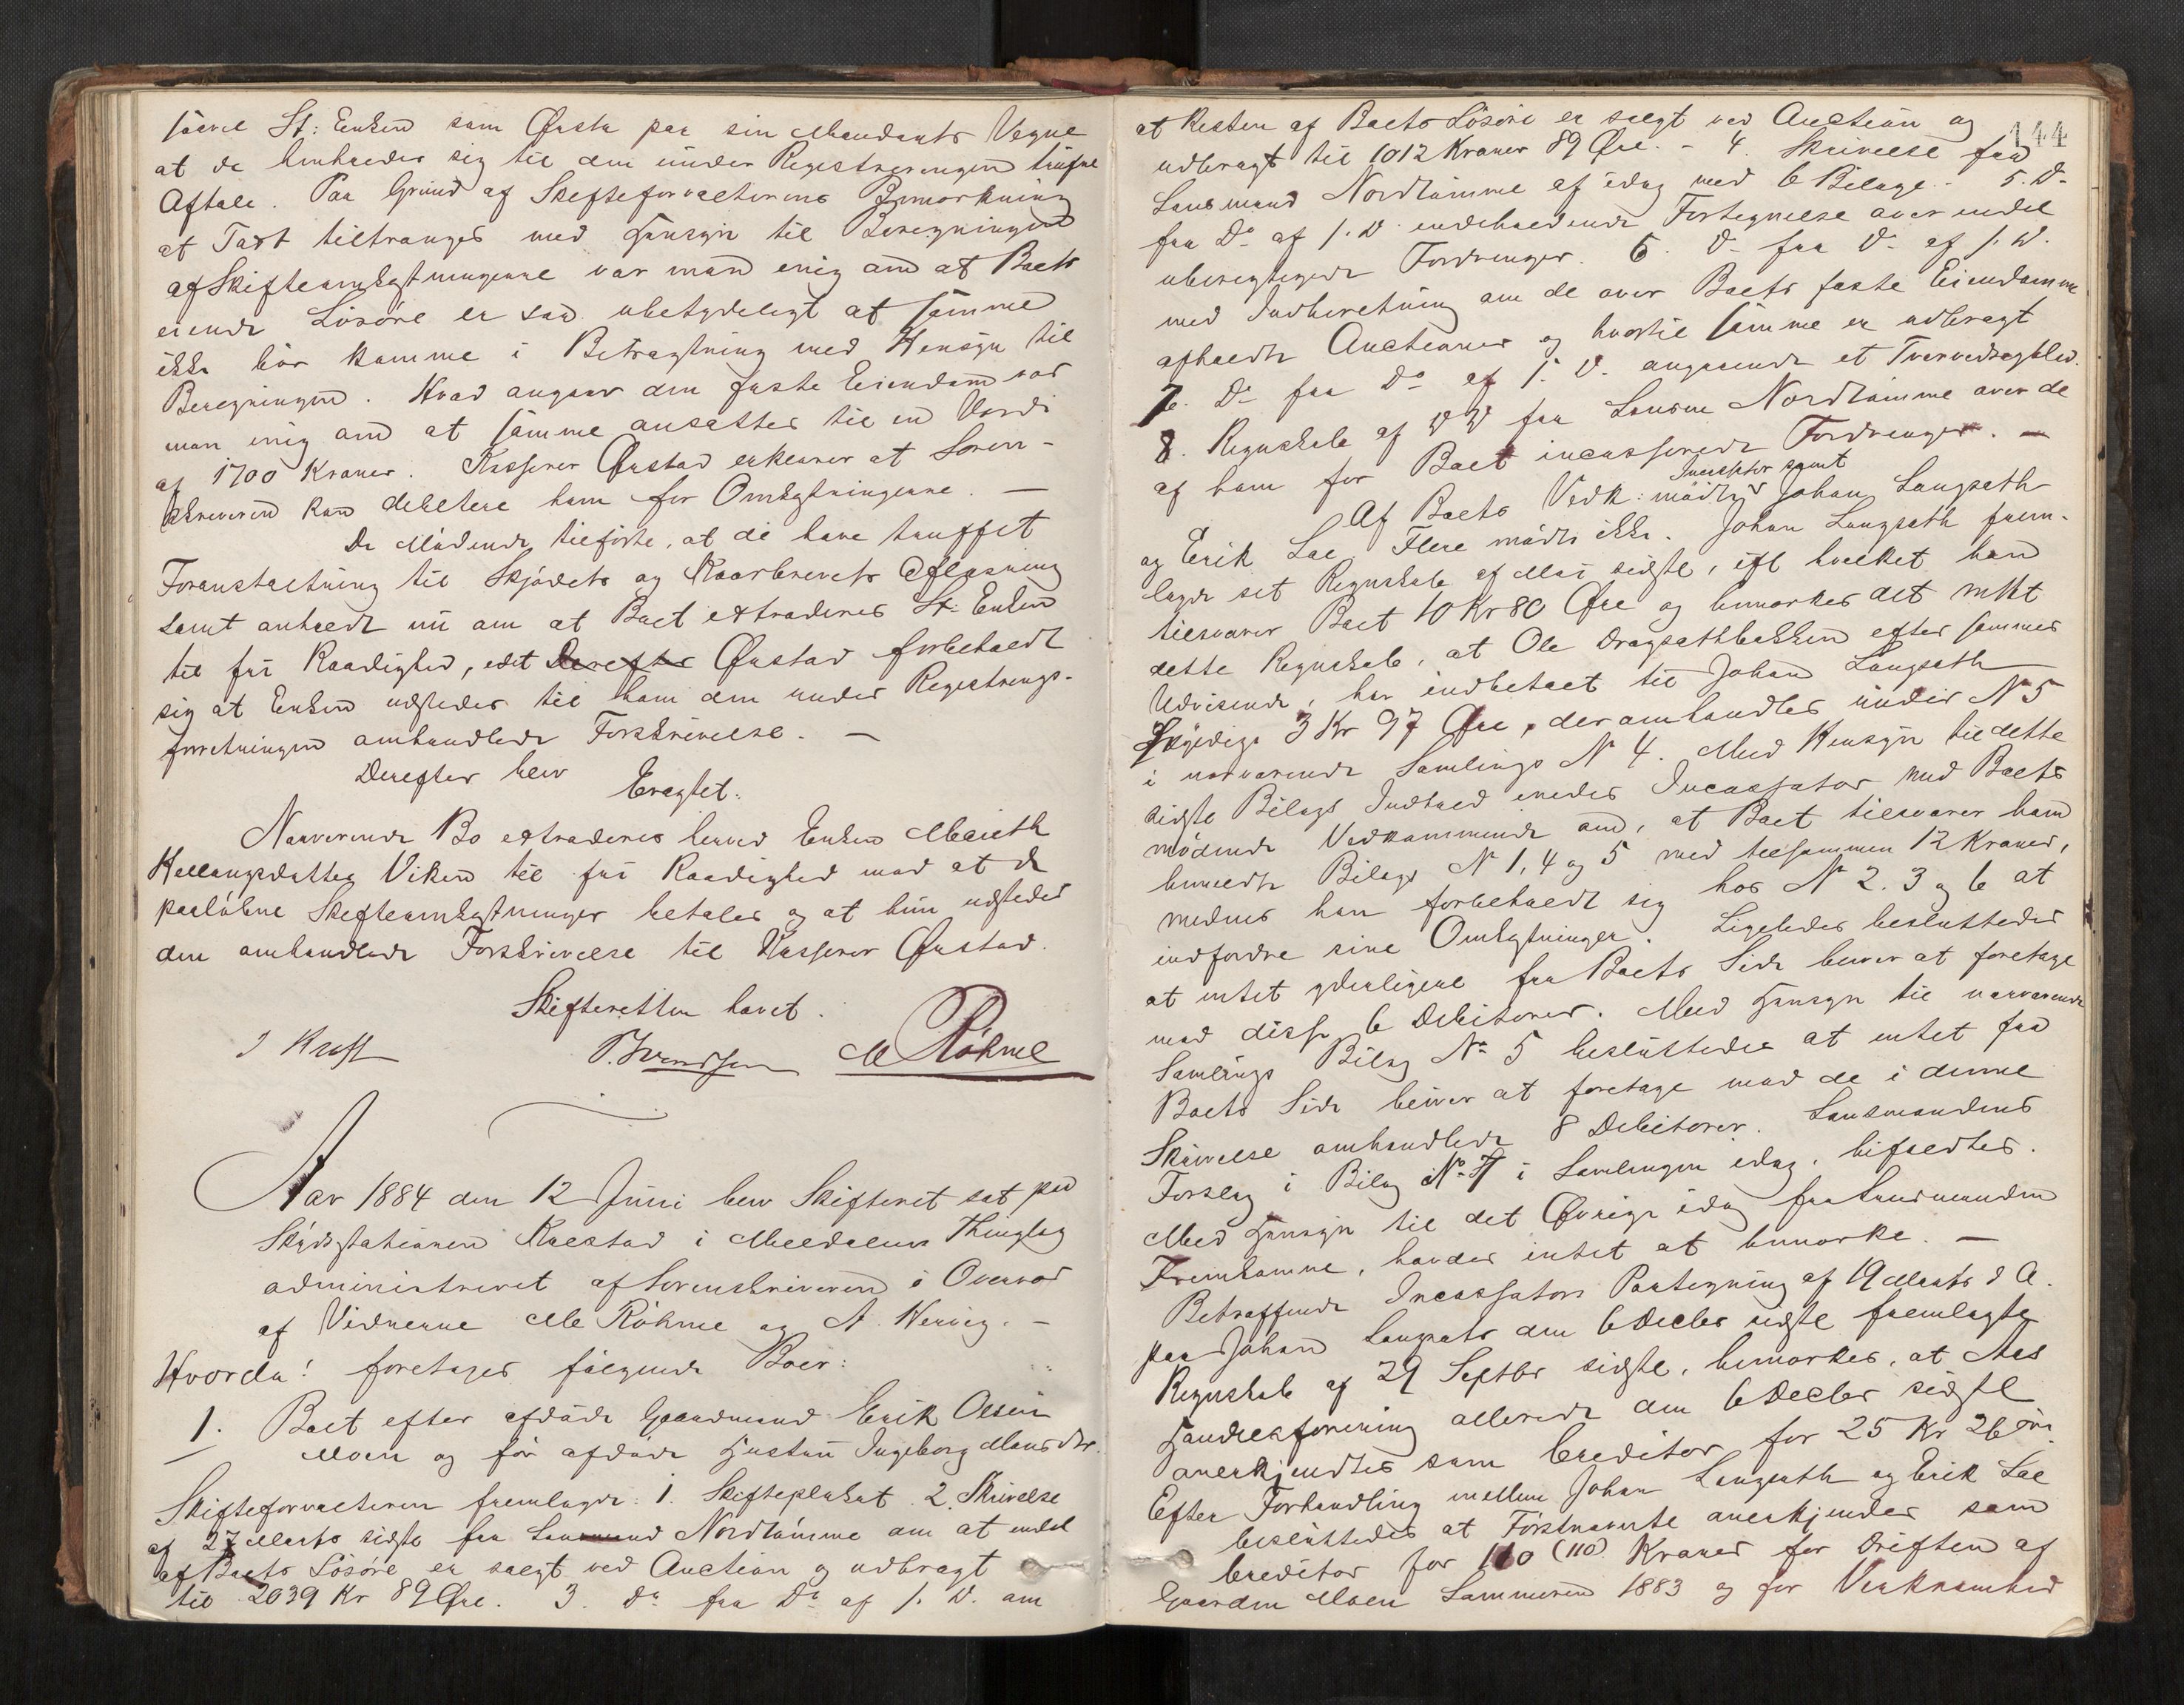 saavel St: Enken som Østa paa sin Mandants Vegne
at de henholder sig til den under Registreringen trufne
Aftale. Paa Grund af Skifteforvalterens Bemærkning
at Taxt tiltrænges med Hensyn til Beregningen
af Skifteomkostningerne var man enig om at Boets
eiende Løsøre er saa ubetydeligt at samme
ikke bør komme i Betragtning med Hensyn til
Beregningen. Hvad angaar den faste Eiendom var
man enig om at samme ansættes til en Værdi
af 1700 Kroner. Kasserer Østad erklærer at Soren-
skriveren kan debitere ham for Omkostningerne. —
De Mødende tilføiede, at de have truffet
Foranstaltning til Skjødets og Kaarbrevets Aflæsning
samt anholdt nu om at Boet extraderes St: Enken
til fri Raadighed, idet Østad forbeholdt
sig at Enken udsteder til ham den under Registrerings-
forretningen omhandlede Forskrivelse. —
Derefter blev
Eragtet:
Nærværende Bo extraderes herved Enken Marith
Kellangsdatter Viken til fri Raadighed mod at de
paaløbne Skifteomkostninger betales og at hun udsteder
den omhandlede Forskrivelse til Kasserer Østad.
Skifteretten hævet.
J Kraft
P. Svendsen M Røhme
Aar 1884 den 12 Juni blev Skifteret sat paa
Skydsstationen Kalstad i Meldalens Thinglag
administreret af Sorenskriveren i Overvær
af Vidnerne M Røhme og A. Henvig. —
Hvorda! foretages følgende Boer:
1. Boet efter afdøde Gaardmand Erik Olsen
Moen og før afdøde Hustru Ingeborg Monsdtr.
Skifteforvalteren fremlagde: 1. Skifteplakat. 2. Skrivelse
af 27 Marts sidste fra Lensmand Nordtømme om at endel
af Boets Løsøre er solgt ved Auction og udbragt
til 2039 Kr 89 Øre. 3. Do fra Do af s. D. om
144
at Resten af Boets Løsøre er solgt ved Auction og
udbragt til 1012 Kroner 89 Øre. – 4. Skrivelse fra
Lensmand Nordtømme af idag med 6 Bilage. – 5. Do
fra Do af s. D. indeholdende Fortegnelse over endel
uberegtigede Fordringer. 6. Do fra Do af s. D.
med Indberetning om de over Boets faste Eiendomme
afholdte Auctioner og hvortil samme er udbragt
7. Do fra Do af s. D. angaaende et
8. Regnskab af D D fra Lensm Nordtømme over de
af ham for Boet incasserede Fordringer. —
Af Boets Vedk: mødte Incassator samt Johan Langsæth
og Erik Lae. Flere mødte ikke. Johan Langsæth frem-
lagde set Regnskab af Mai sidste, ifl hvilket han
tilsvarer Boet 10 Kr 80 Øre og bemærkes det mHt
dette Regnskab, at Ole Dragsæthbakken efter sammes
Udvisende, har indbetalt til Johan Langsæth
skyldige 3 Kr 97 Øre, der omhandles under No 5
i nærværende Samlings No 4. Med Hensyn til dette
sidste Bilags Indhold enedes Incassator med Boets
mødende Vedkommende om, at Boet tilsvarer ham
bemeldte Bilags No 1, 4 og 5 med tilsammen 12 Kroner,
medens han forbeholdt sig hos No 2. 3 og 6 at
indfordre sine Omkostninger. Ligeledes besluttedes
at intet yderligere fra Boets Side bliver at foretage
mod disse 6 Debitorer. Med Hensyn til nærværende
Samlings Bilag No 5 besluttedes at intet fra
Boets Side bliver at foretage mod de i denne
Skrivelse omhandlede 8 Debitorer. Lensmandens
Forslag i Bilag No 7 i Samlingen idag, bifaldtes.
Med Hensyn til det Øvrige idag fra Lensmanden
Fremkomne, havdes intet at bemærke. —
Betræffende Incassators Paategning af 19 Marts d A.
paa Johan Langsæts den 6 Decbr sidste fremlagte
Regnskab af 29 Septbr sidste, bemærkes, at Aas
Handelsforening allerede den 6 Decbr sidste
anerkjendtes som Creditor for 25 Kr 26 Øre.
Efter Forhandling mellem Johan Langsæth og Erik Lae
besluttedes at Førstnævnte anerkjendes som
Creditor for 110 (110) Kroner for Driften af
Gaarden Moen Sommeren 1883 og for Virksomhed